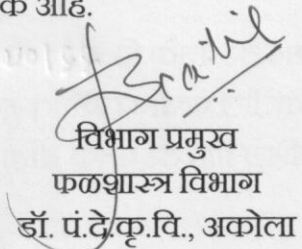 क आहे.
विभाग प्रमुख
फळशास्त्र विभाग
डॉ. पं.दे.कृ.वि., अकोला